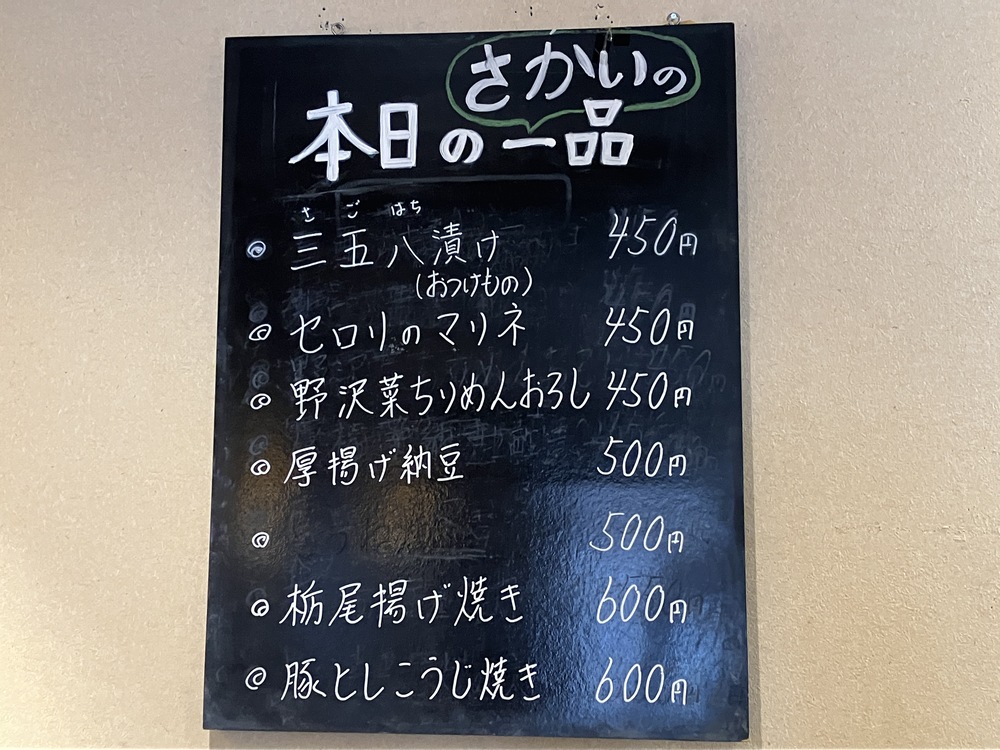 さかいの
本日の一品
さ ご はち
三五八漬け 450円
(おつけもの)
セロリのマリネ 450円
野沢菜ちりめんおろし 450円
厚揚げ納豆 500円
500円
栃尾揚げ焼き 600円
豚としこうじ焼き 600円